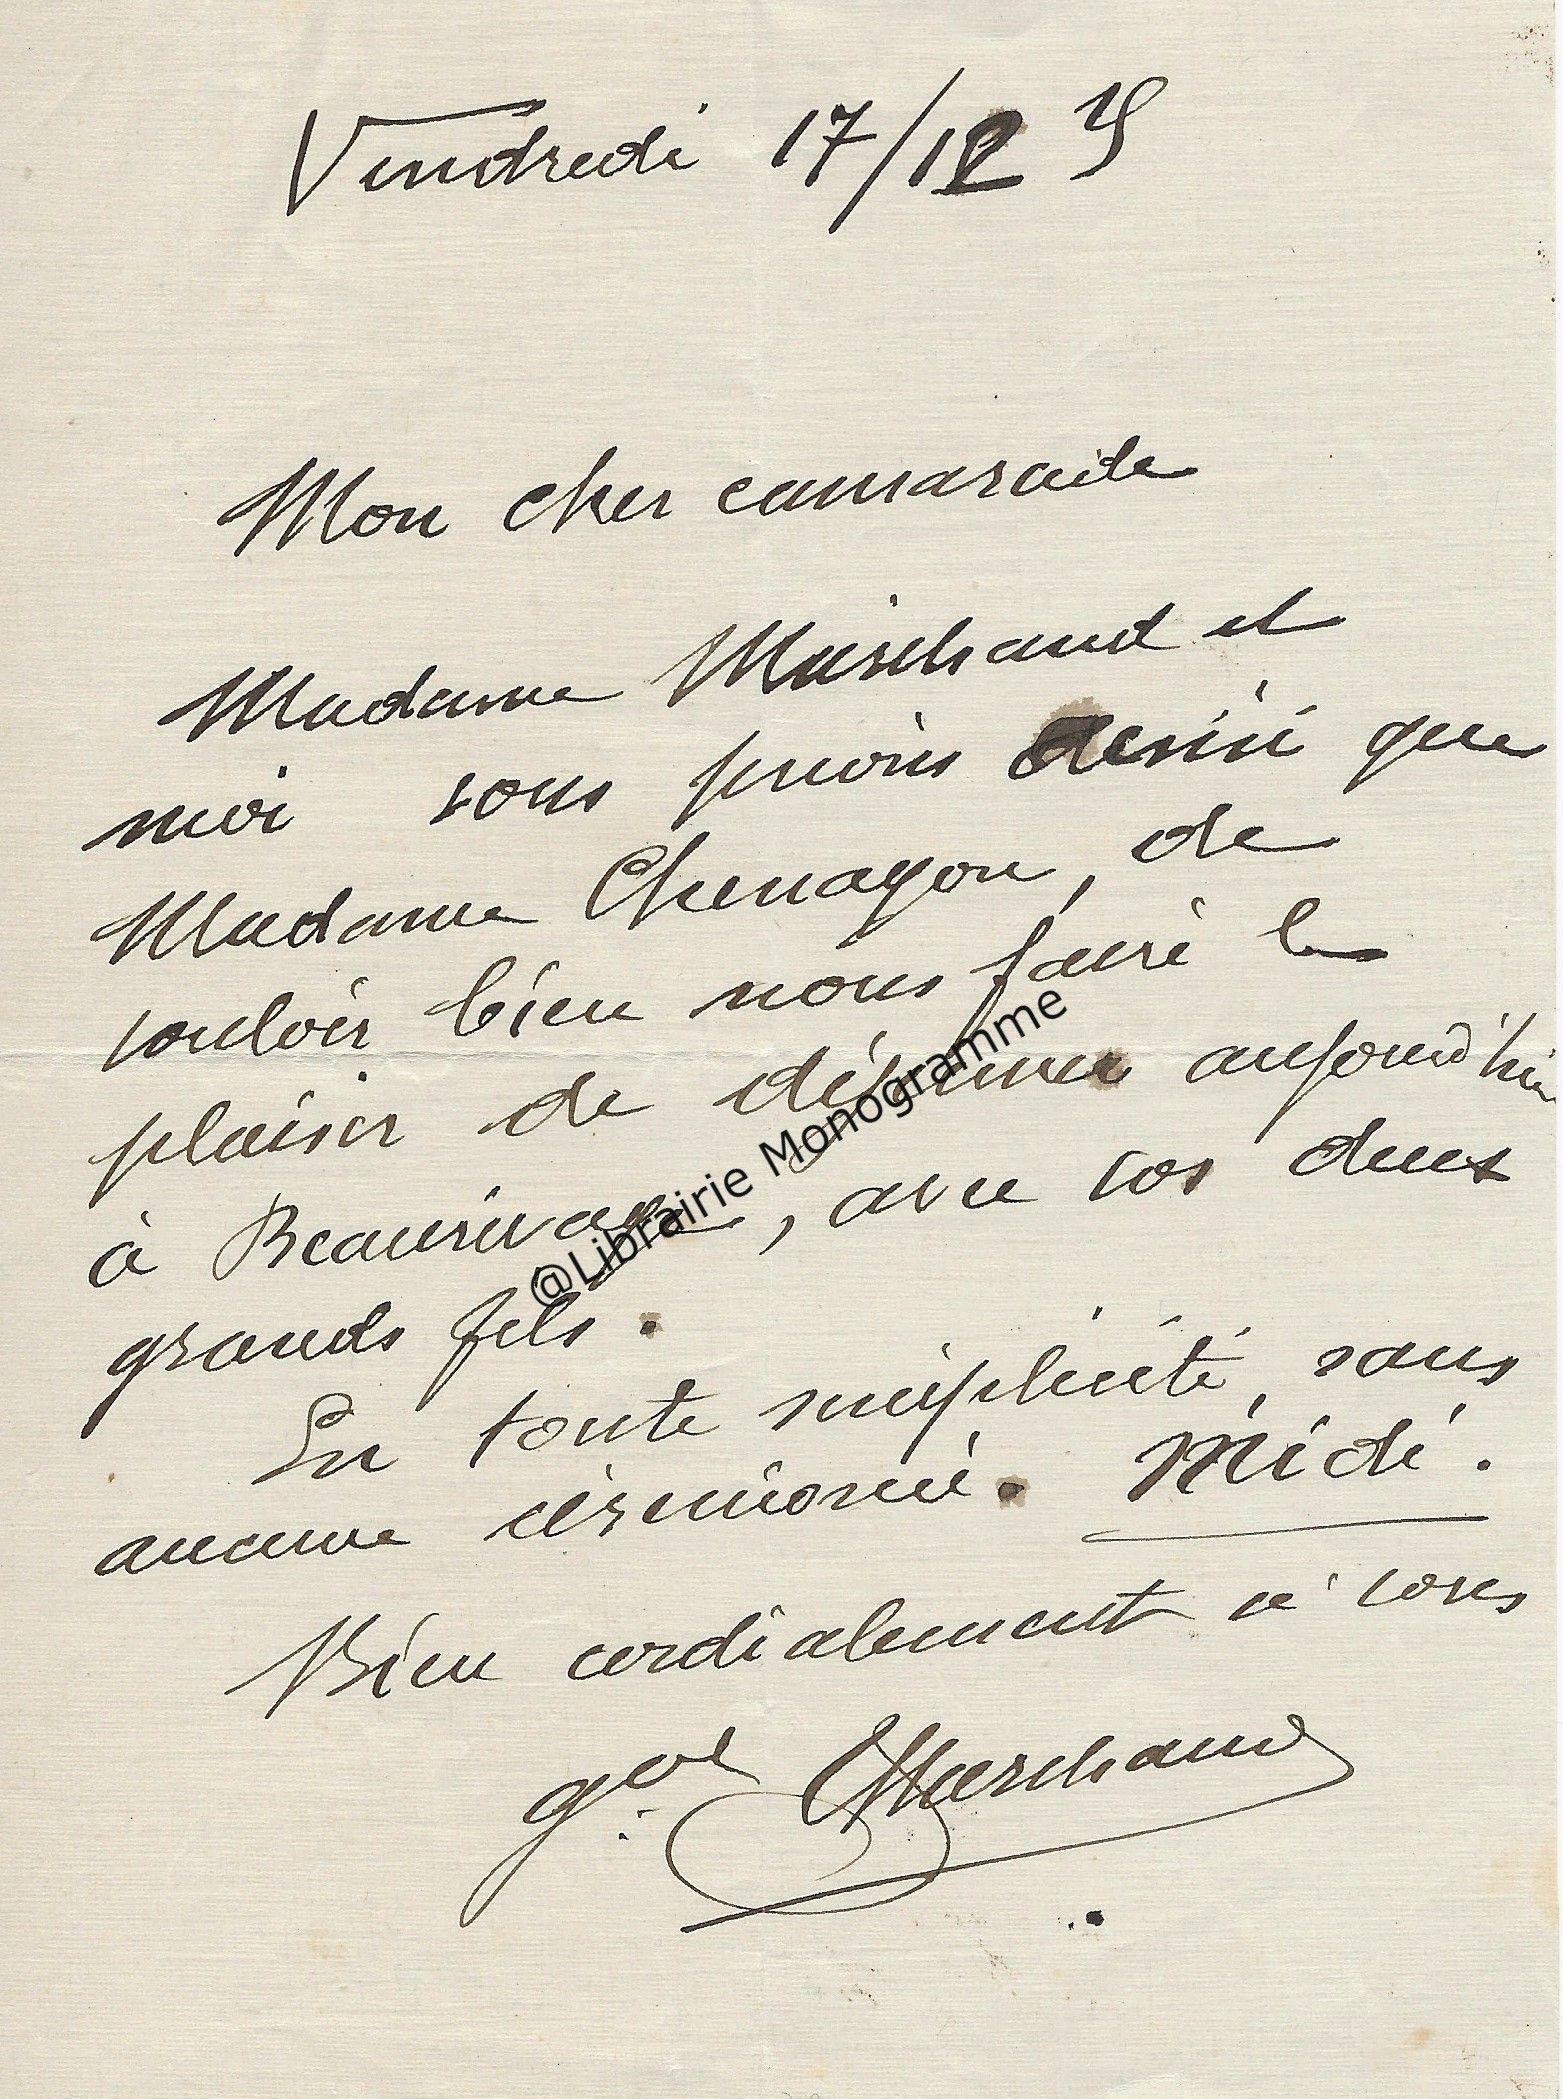 Vendredi 17/12
Mon cher camarade
Madame Marchand et
moi vous prions ainsi que
Madame Chenagon, de
vouloir bien nous faire le
plaisir de déjeuner aujourd'hui
à Beaurivage, avec vos deux
grands fils.
En toute simplicité, sans
aucune cérémonie. Midi.
Bien cordialement à vous
gal Marchand
@Librairie Monogramme